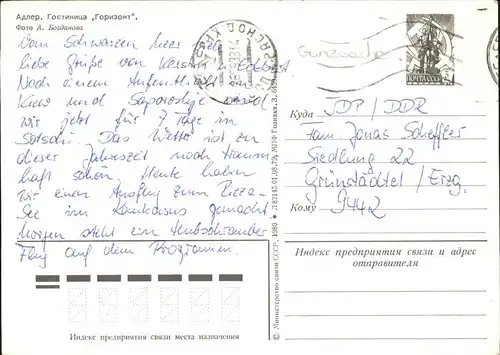 Адлер. Гостиница „Горизонт".
Фото А. Богданова
Vom Schwarzen Meer
liebe Grüße von Kerstin
Nach einem Aufenthalt in
Kiew und Saporoshje
wir jetzt für 7 Tage in
Sotschi. Das Wetter ist zu
dieser Jahreszeit noch traum-
haft schön. Heute haben
wir einen Ausflug zum Rizza-
See im Kaukasus gemacht.
Morgen steht ein Hubschrauber
flug auf dem Programm.
Индекс предприятия связи места назначения
© Министерство связи СССР. 1980
ПОЧТА СССР
Куда
Fam. Jonas Scheffler
Siedlung 22
Grünstädtel / Erzg.
Кому
9442
Индекс предприятия связи и адрес
отправителя